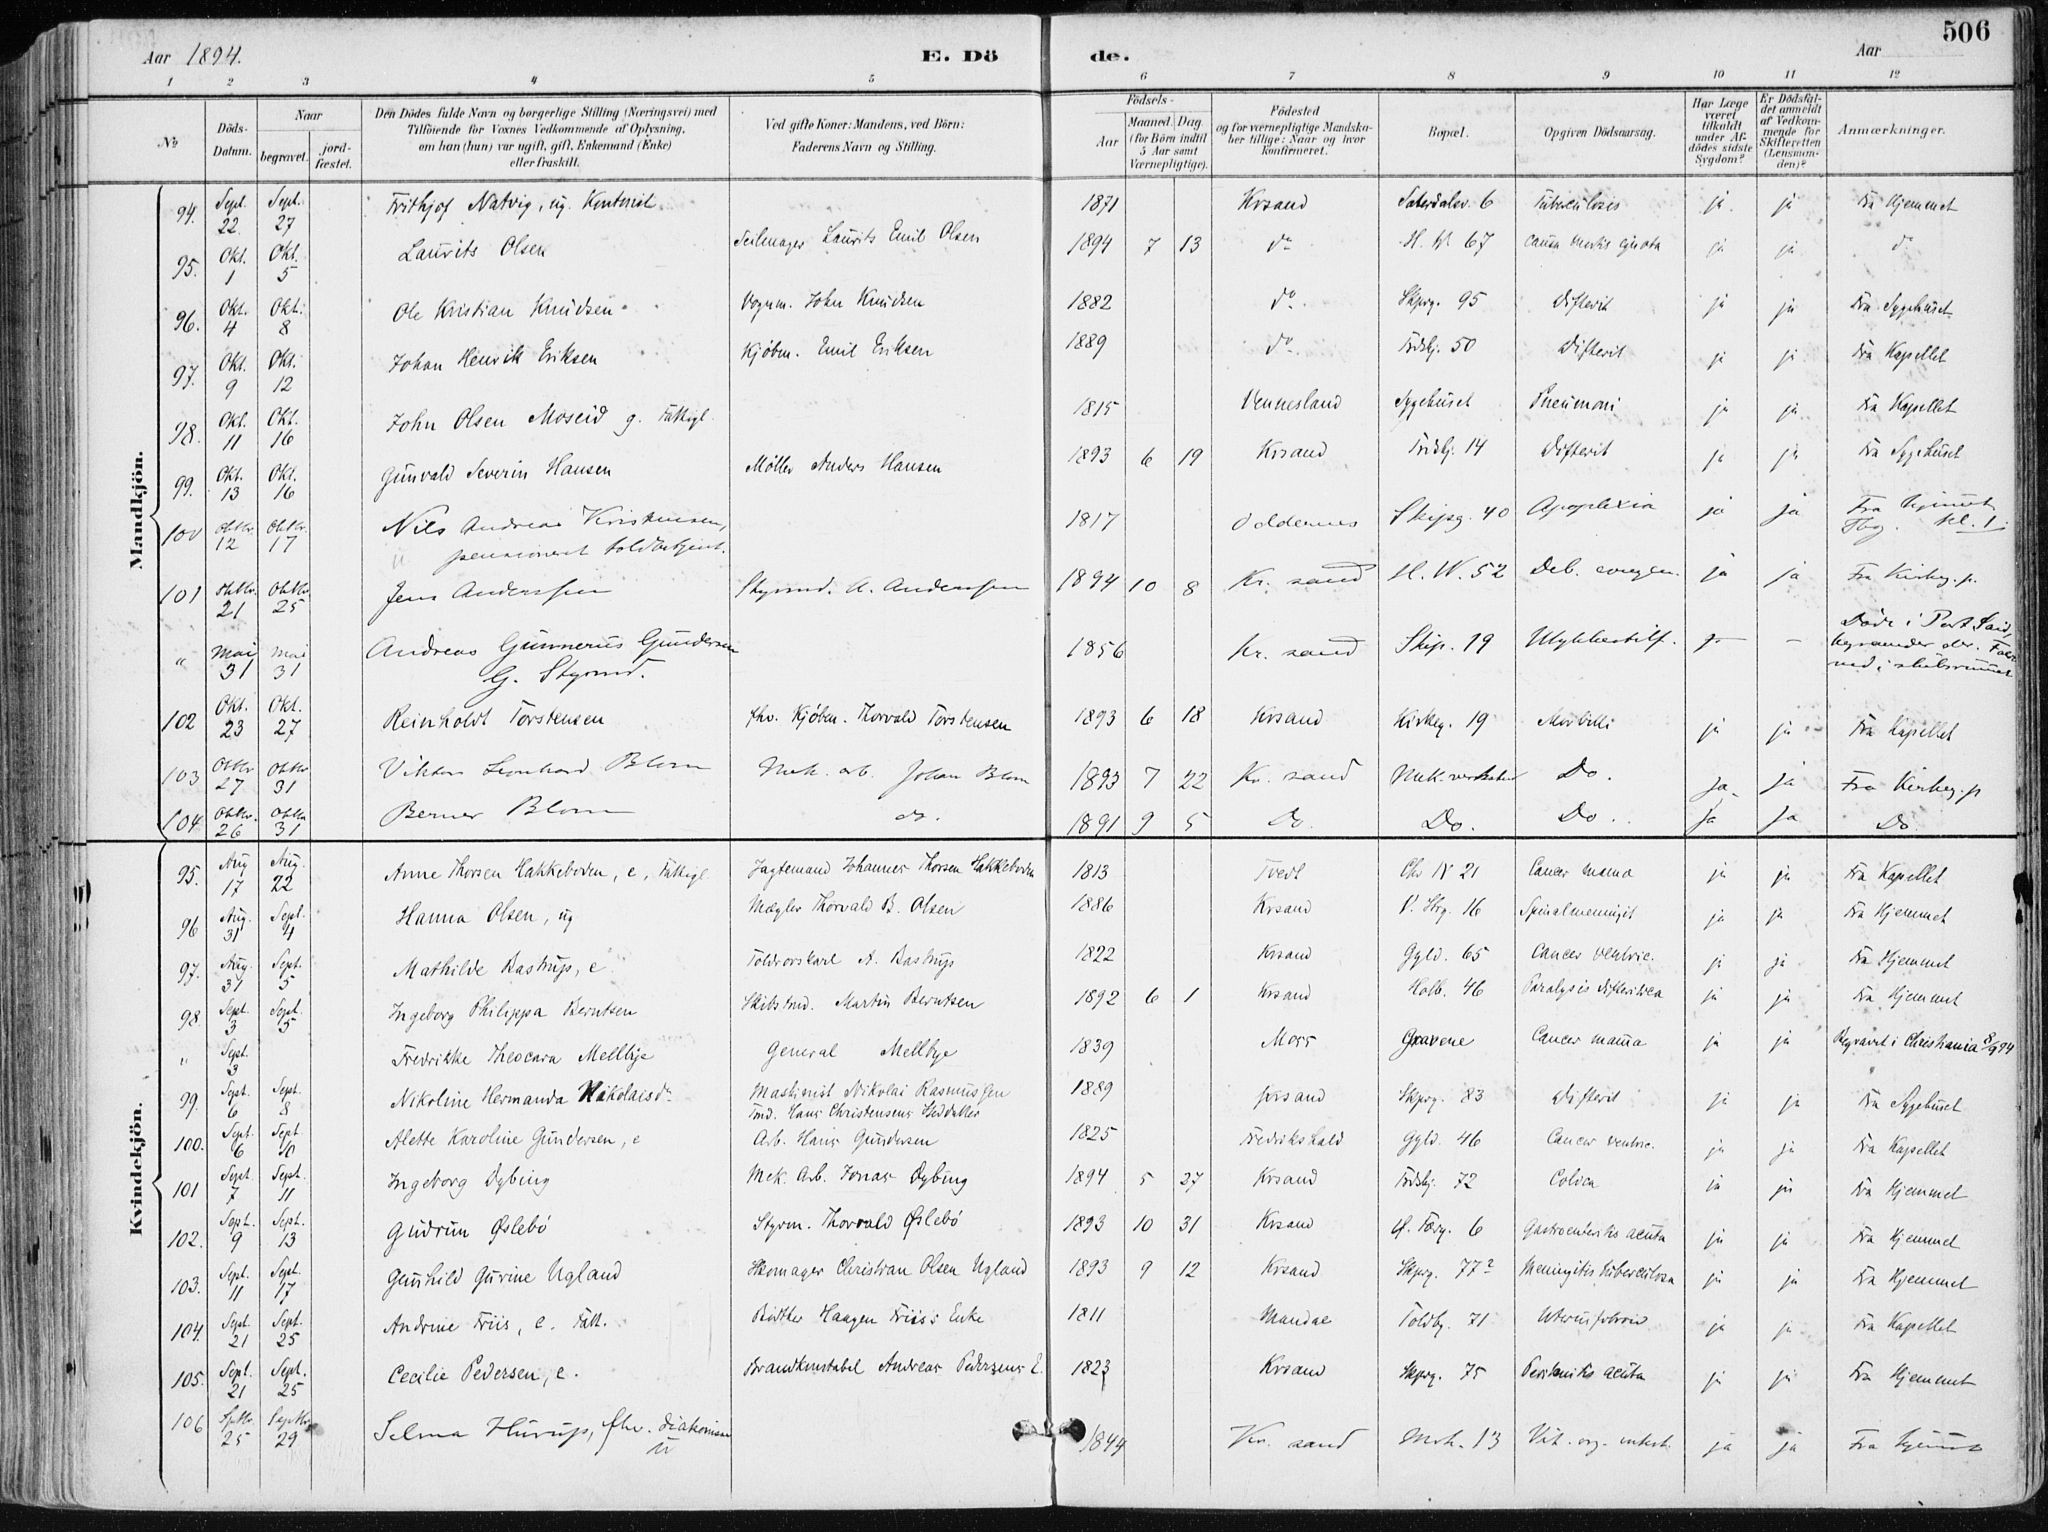 Aar 1894. E. Dö de. Aar 506
1 2 3 4 5 6 7 8 9 10 11 12
No
Döds-Datum.
Naar begravet. jord-fæstet.
Den Dödes fulde Navn og borgerlige Stilling (Næringsvei) med Tilföiende for Voxnes Vedkommende af Oplysning, om han (hun) var ugift, gift, Enkemand (Enke) eller fraskilt.
Ved gifte Koner: Mandens, ved Börn: Faderens Navn og Stilling.
Födsels-
Aar Maaned. Dag. (for Börn indtil 5 Aar samt Værnepligtige).
Födested og for værnepligtige Mandskaber tillige: Naar og hvor konfirmeret.
Bopæl.
Opgiven Dödsaarsag.
Har Læge været tilkaldt under Afdödes sidste Sygdom?
Er Dödsfaldet anmeldt af Vedkommende for Skifteretten (Lensmanden)?
Anmærkninger.
Mandkjön.
94. Sept. 22. Sept. 27 Frithjof Natvig, ug. Kontorist 1871 Krsand Sæterdalsv. 6 Tuberculosis ja ja Fra Hjemmet
95. Okt. 1 Okt. 5 Laurits Olsen Seilmager Laurits Emil Olsen 1894 7 13 do H. W. 67 causa mortis ignota ja ja do
96. Okt. 4 Okt. 8 Ole Kristian Knudsen Vognm. John Knudsen 1882 do. Skprg. 95 Difterit ja ja Fra Sygehuset
97. Okt. 9 Okt. 12 Johan Henrik Eriksen Kjøbm. Emil Eriksen 1889 do. Tordskj. 50 Difterit ja ja Fra Kapellet
98. Okt. 11 Okt. 16 John Olsen Moseid g. Fattigl. 1815 Vennesland Sygehuset Pneumoni ja ja Fra Kapellet
99. Okt. 13 Okt. 16 Gunvald Severin Hansen Møller Anders Hansen 1893 6 19 Krsand Tordskj. 14 Difterit ja ja Fra Sygehuset
100 Oktbr. 12 Oktbr. 17 Nils Andreas Kristensen, 1817 Oddernes Skipsg. 40 Apoplexia ja ja Fra Hjemmet
pensioneret toldbetjent. Kl. 1
101 Oktbr. 21 Oktbr. 25 Jens Anderssen Styrmd. A. Anderssen 1894 10 8 Kr. sand H. W. 52 Deb. congen. ja ja Fra Kirkeg. p.
" Mai 31 Mai 31 Andreas Gunnerus Gundersen 1856 Kr. sand Skip. 19 Ulykkestilf. – – Døde i Port Said,
G. Styrmd. begravedes der.
102 Okt. 23 Okt. 27 Reinholdt Torstensen fhv. Kjøbm. Thorvald Torstensen 1893 6 18 Krsand Kirkeg. 19 Morbilli ja ja Fra Kapellet
103 Oktbr 27 Oktbr 31 Viktor Leonhard Blom Mek. arb. Johan Blom 1893 7 22 Kr. sand Mek. verksted Do. ja ja Fra Kirkeg. p
104. Oktbr. 26 Oktbr 31 Berner Blom do. 1891 9 5 Do. Do. Do. ja ja Do.
Kvindekjön.
95. Aug 17 Aug. 22 Anne Thorsen Hakkeboden, e, Fattigl. Jagtemand Johannes Thorsen Hakkeboden 1813 Tvedt Chr IV 21 Cancer mama ja ja Fra Kapellet
96 Aug. 31 Sept. 4 Hanna Olsen, ug Mægler Thorvald B. Olsen 1886 Krsand V. Strg. 16 Spinalmeningit ja ja Fra Hjemmet
97. Aug. 31 Sept. 5 Mathilde Bastrup, e Toldrorskarl A. Bastrup 1822 Krsand Gyld. 65 Cancer ventric. ja ja Fra Hjemmet
98. Sept. 3 Sept. 5 Ingeborg Philippa Berntsen Skibstmd. Martin Berntsen 1892 6 1 Krsand Holb. 46 Paralysis difteritica ja ja Fra Hjemmet
" Sept. 3 Fredrikke Theodora Mellbye General Mellbye 1839 Moss Gravene Cancer mama ja ja Begravet i Christiania 8/9 94
99. Sept. 6 Sept. 8 Nikoline Hermanda Nikolaisdr Maskinist Nikolai Rasmussen 1889 Krsand Skprg. 83 Difterit ja ja Fra Sygehuset
Tmd. Hans Christensens Steddatter
100. Sept. 6 Sept. 10 Alette Karoline Gundersen, e Arb. Hans Gundersen 1825 Fredrikshald Gyld. 46 Cancer ventric. ja ja Fra Kapellet
101 Sept. 7 Sept. 11 Ingeborg Dybing Mek. Arb. Jonas Dybing 1894 5 27 Krsand Tordskj. 72 Colica ja ja Fra Hjemmet
102. Sept. 9 Sept. 13 Gudrun Øslebø Styrm. Thorvald Øslebø 1893 10 31 Krsand 6 Gastroenteritis acuta ja ja Fra Hjemmet
103. Sept. 11 Sept. 17 Gunhild Gurine Ugland Skomager Christian Olsen Ugland 1893 9 12 Krsand Skprg. 77² Meningitis tuberculosa ja ja Fra Hjemmet
104. Sept. 21 Sept. 25 Andrine Friis, e. Fatt. Bødker Haagen Friis's Enke 1811 Mandal Toldbg. 71 Uterusfibroid ja ja Fra Kapellet
105. Sept. 21 Sept. 25 Cecilie Pedersen, e. Brandkonstabel Andreas Pedersens E. 1823 Krsand Skprg. 75 Peritonitis acuta ja ja Fra Hjemmet
106 Septbr. 25 Septbr 29 Selma Hurup, fhv. diakonisse 1844 Kr. sand Mrk. 13 Vit. org. cordis ja ja Fra Hjemmet
u